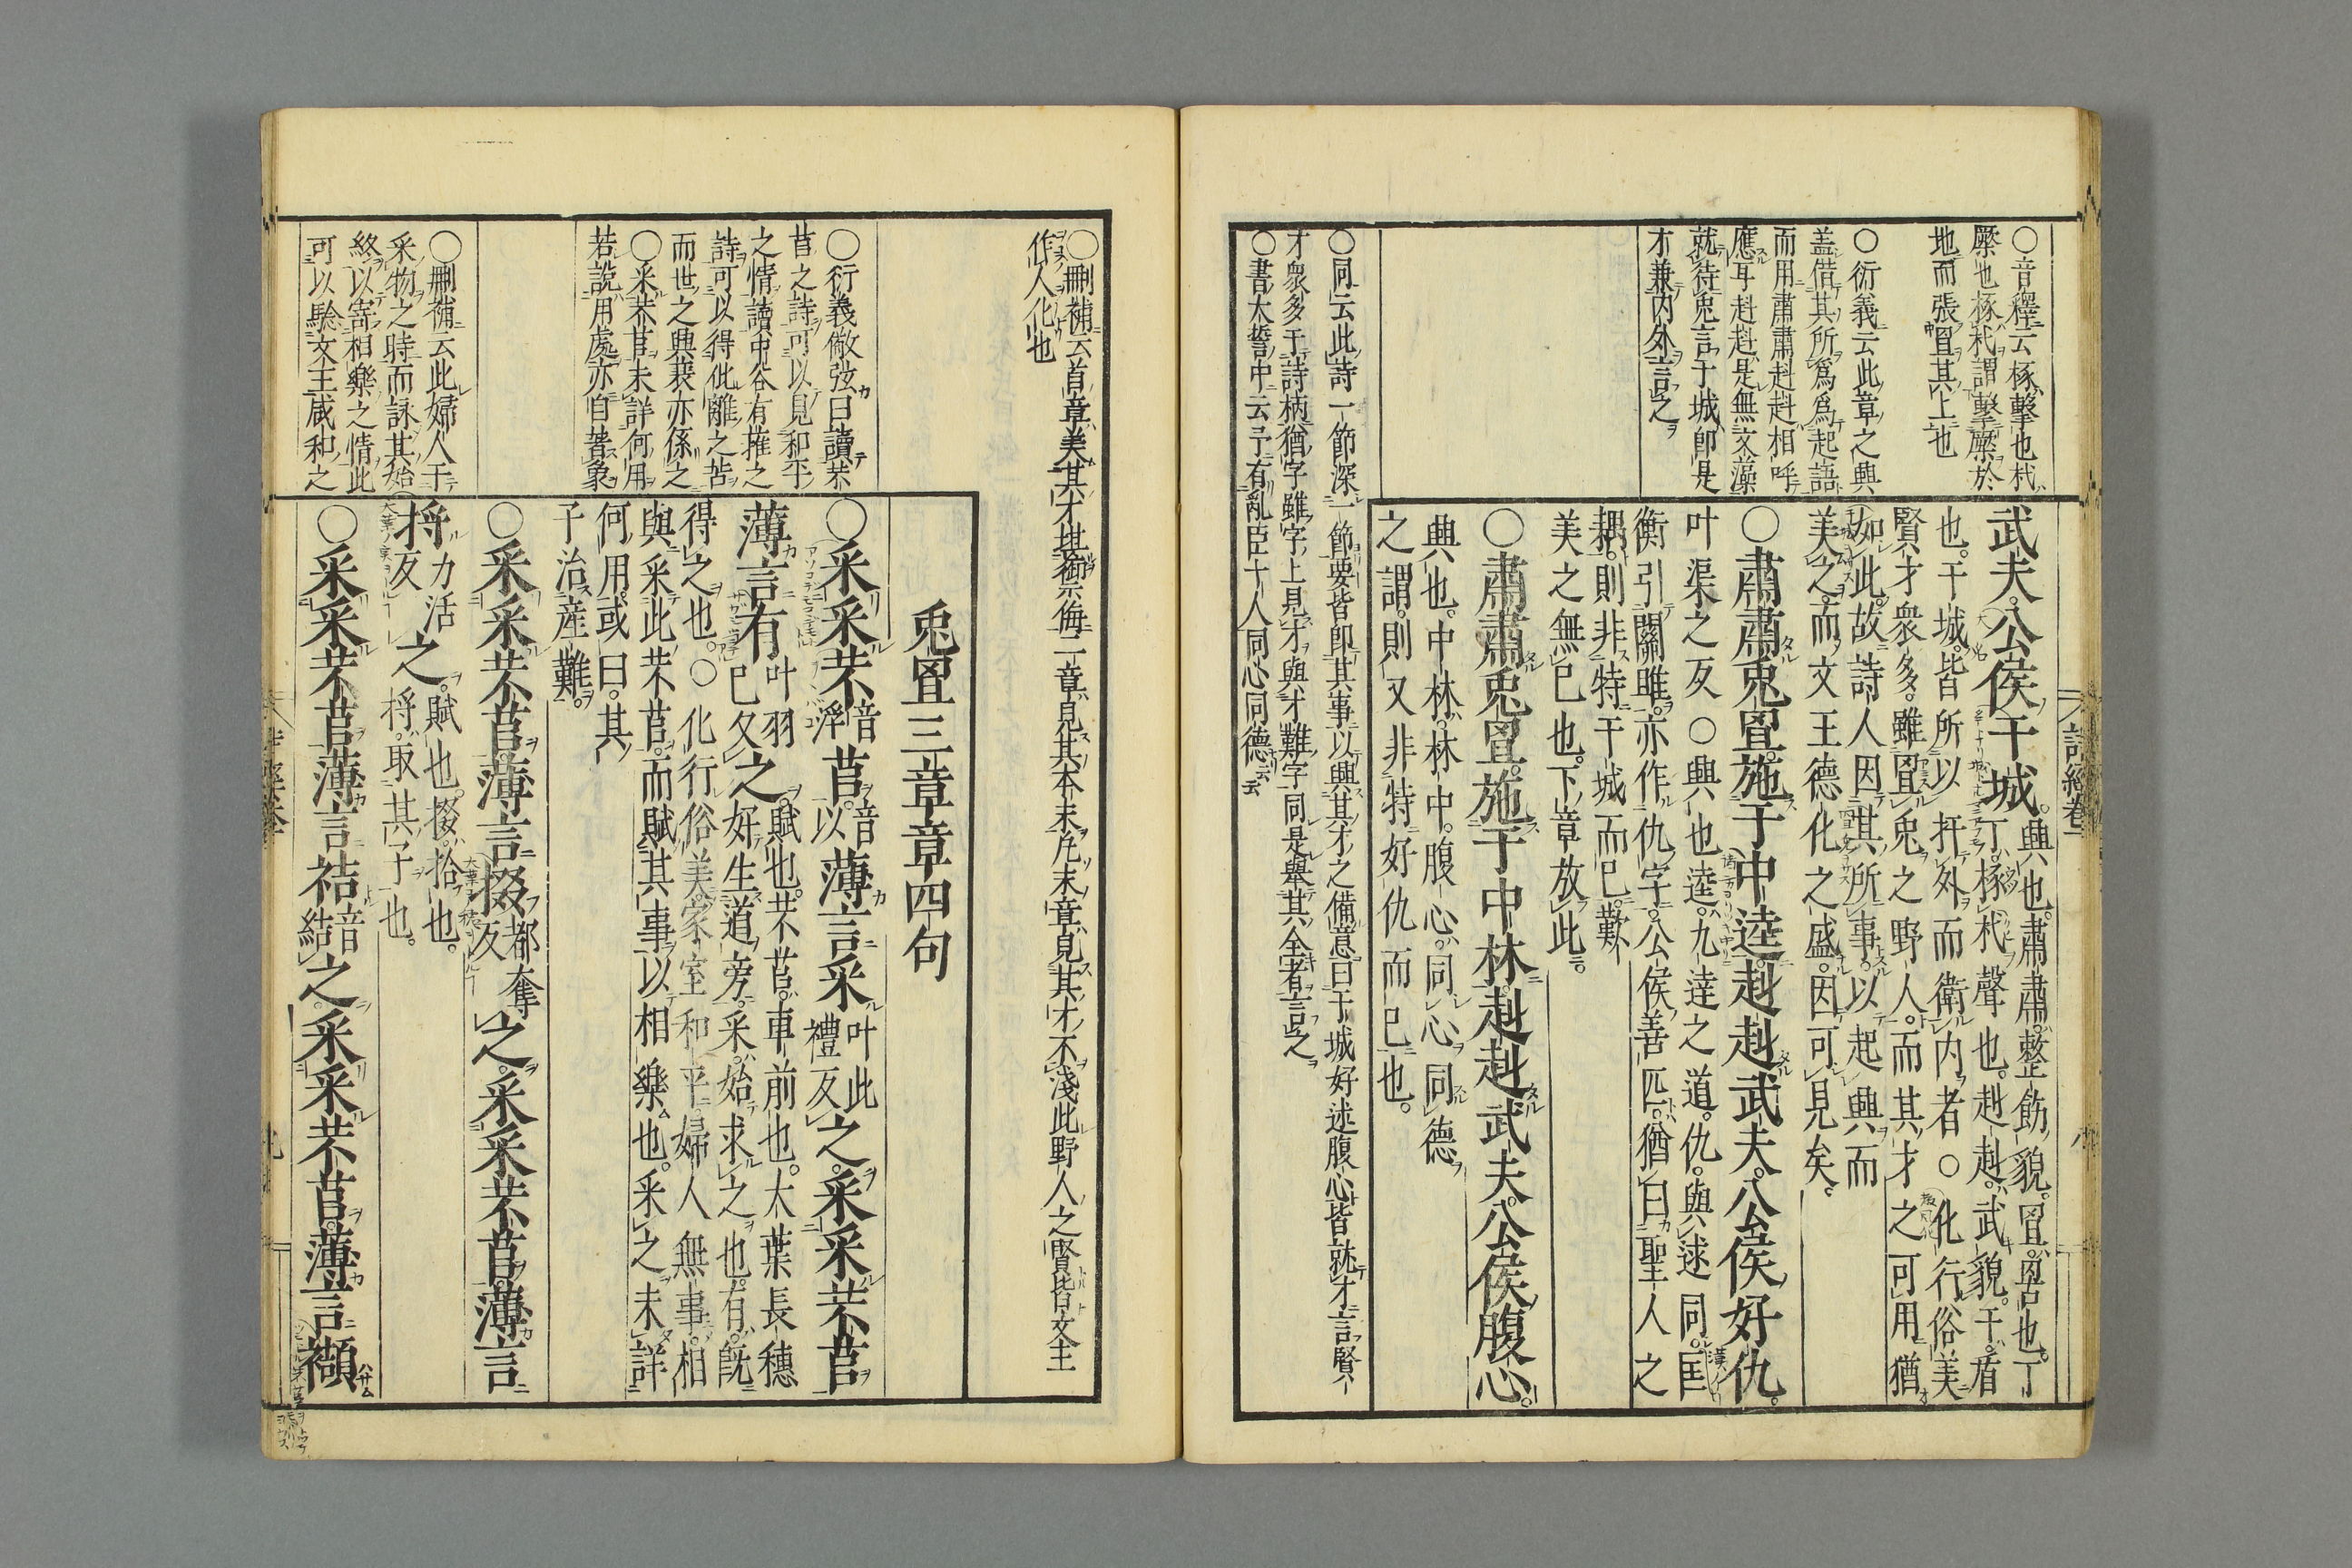 ○音釋云椓擊也杙
橜也椓杙謂擊橜於
地而張罝其上也
○衍義云此章之興
盖借其所爲爲起語
而用肅肅赳赳相呼
應耳赳赳是無文藻
就待兎言于城即是
才兼内外言之
武夫公侯干城興也肅肅整飭貌罝罟也丁
丁椓杙聲也赳赳武貌干盾
也干城皆所以扞外而衛内者○化行俗美
賢才衆多雖罝兎之野人而其才之可用猶
如此故詩人因其所事以起興而
美之而文王德化之盛因可見矣
○肅肅兎罝施于中逵赳赳武夫公侯好仇
叶渠之反○興也逵九逹之道仇與逑同匡
衡引關雎亦作仇字公侯善匹猶曰聖人之
耦則非特干城而已歎
美之無已也下章放此
○肅肅兎罝施于中林赳赳武夫公侯腹心
興也中林林中腹心同心同德
之謂則又非特好仇而已也
○同云此詩一節深一節要皆即其事以興其才之備意曰于城好逑腹心皆就才言賢
才衆多于詩柄猶字雖字上見才與才難字同是舉其全者言之
○書大誓中云予有亂臣十人同心同德云云
詩經卷一
八
○刪補云首章美其才堪衛禦侮二章見其本末九末章見其才不淺此野人之賢皆文王
作人化也
○衍義儆弦曰讀芣
苢之詩可以見和平
之情讀中谷有蓷之
詩可以得仳離之苦
而世之興衰亦係之
○采芣苢未詳何用
若說用處亦自詧象
○刪補云此婦人于
采物之時而詠其始
終以寄相樂之情此
可以驗文王咸和之
兎罝三章章四句
○采采芣音浮苢音以薄言采叶此禮反之采采芣苢
薄言有叶羽已反之賦也芣苢車前也大葉長穗
好生道旁采始求之也有既
得之也○化行俗美家室和平婦人無事相
與采此芣苢而賦其事以相樂也采之未詳
何用或曰其
子治產難
○采采芣苢薄言掇都奪反之采采芣苢薄言
捋力活反之賦也掇拾也
捋取其子也
○采采芣苢薄言袺音結之采采芣苢薄言襭